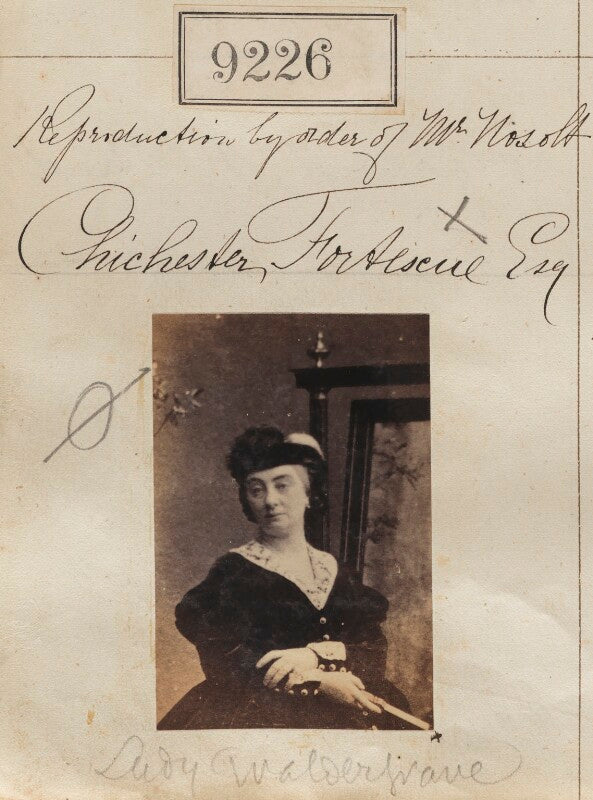 9226
Reproduction by order of Mr. Nosolt
Chichester Fortescue Esq
Lady Waldergrave